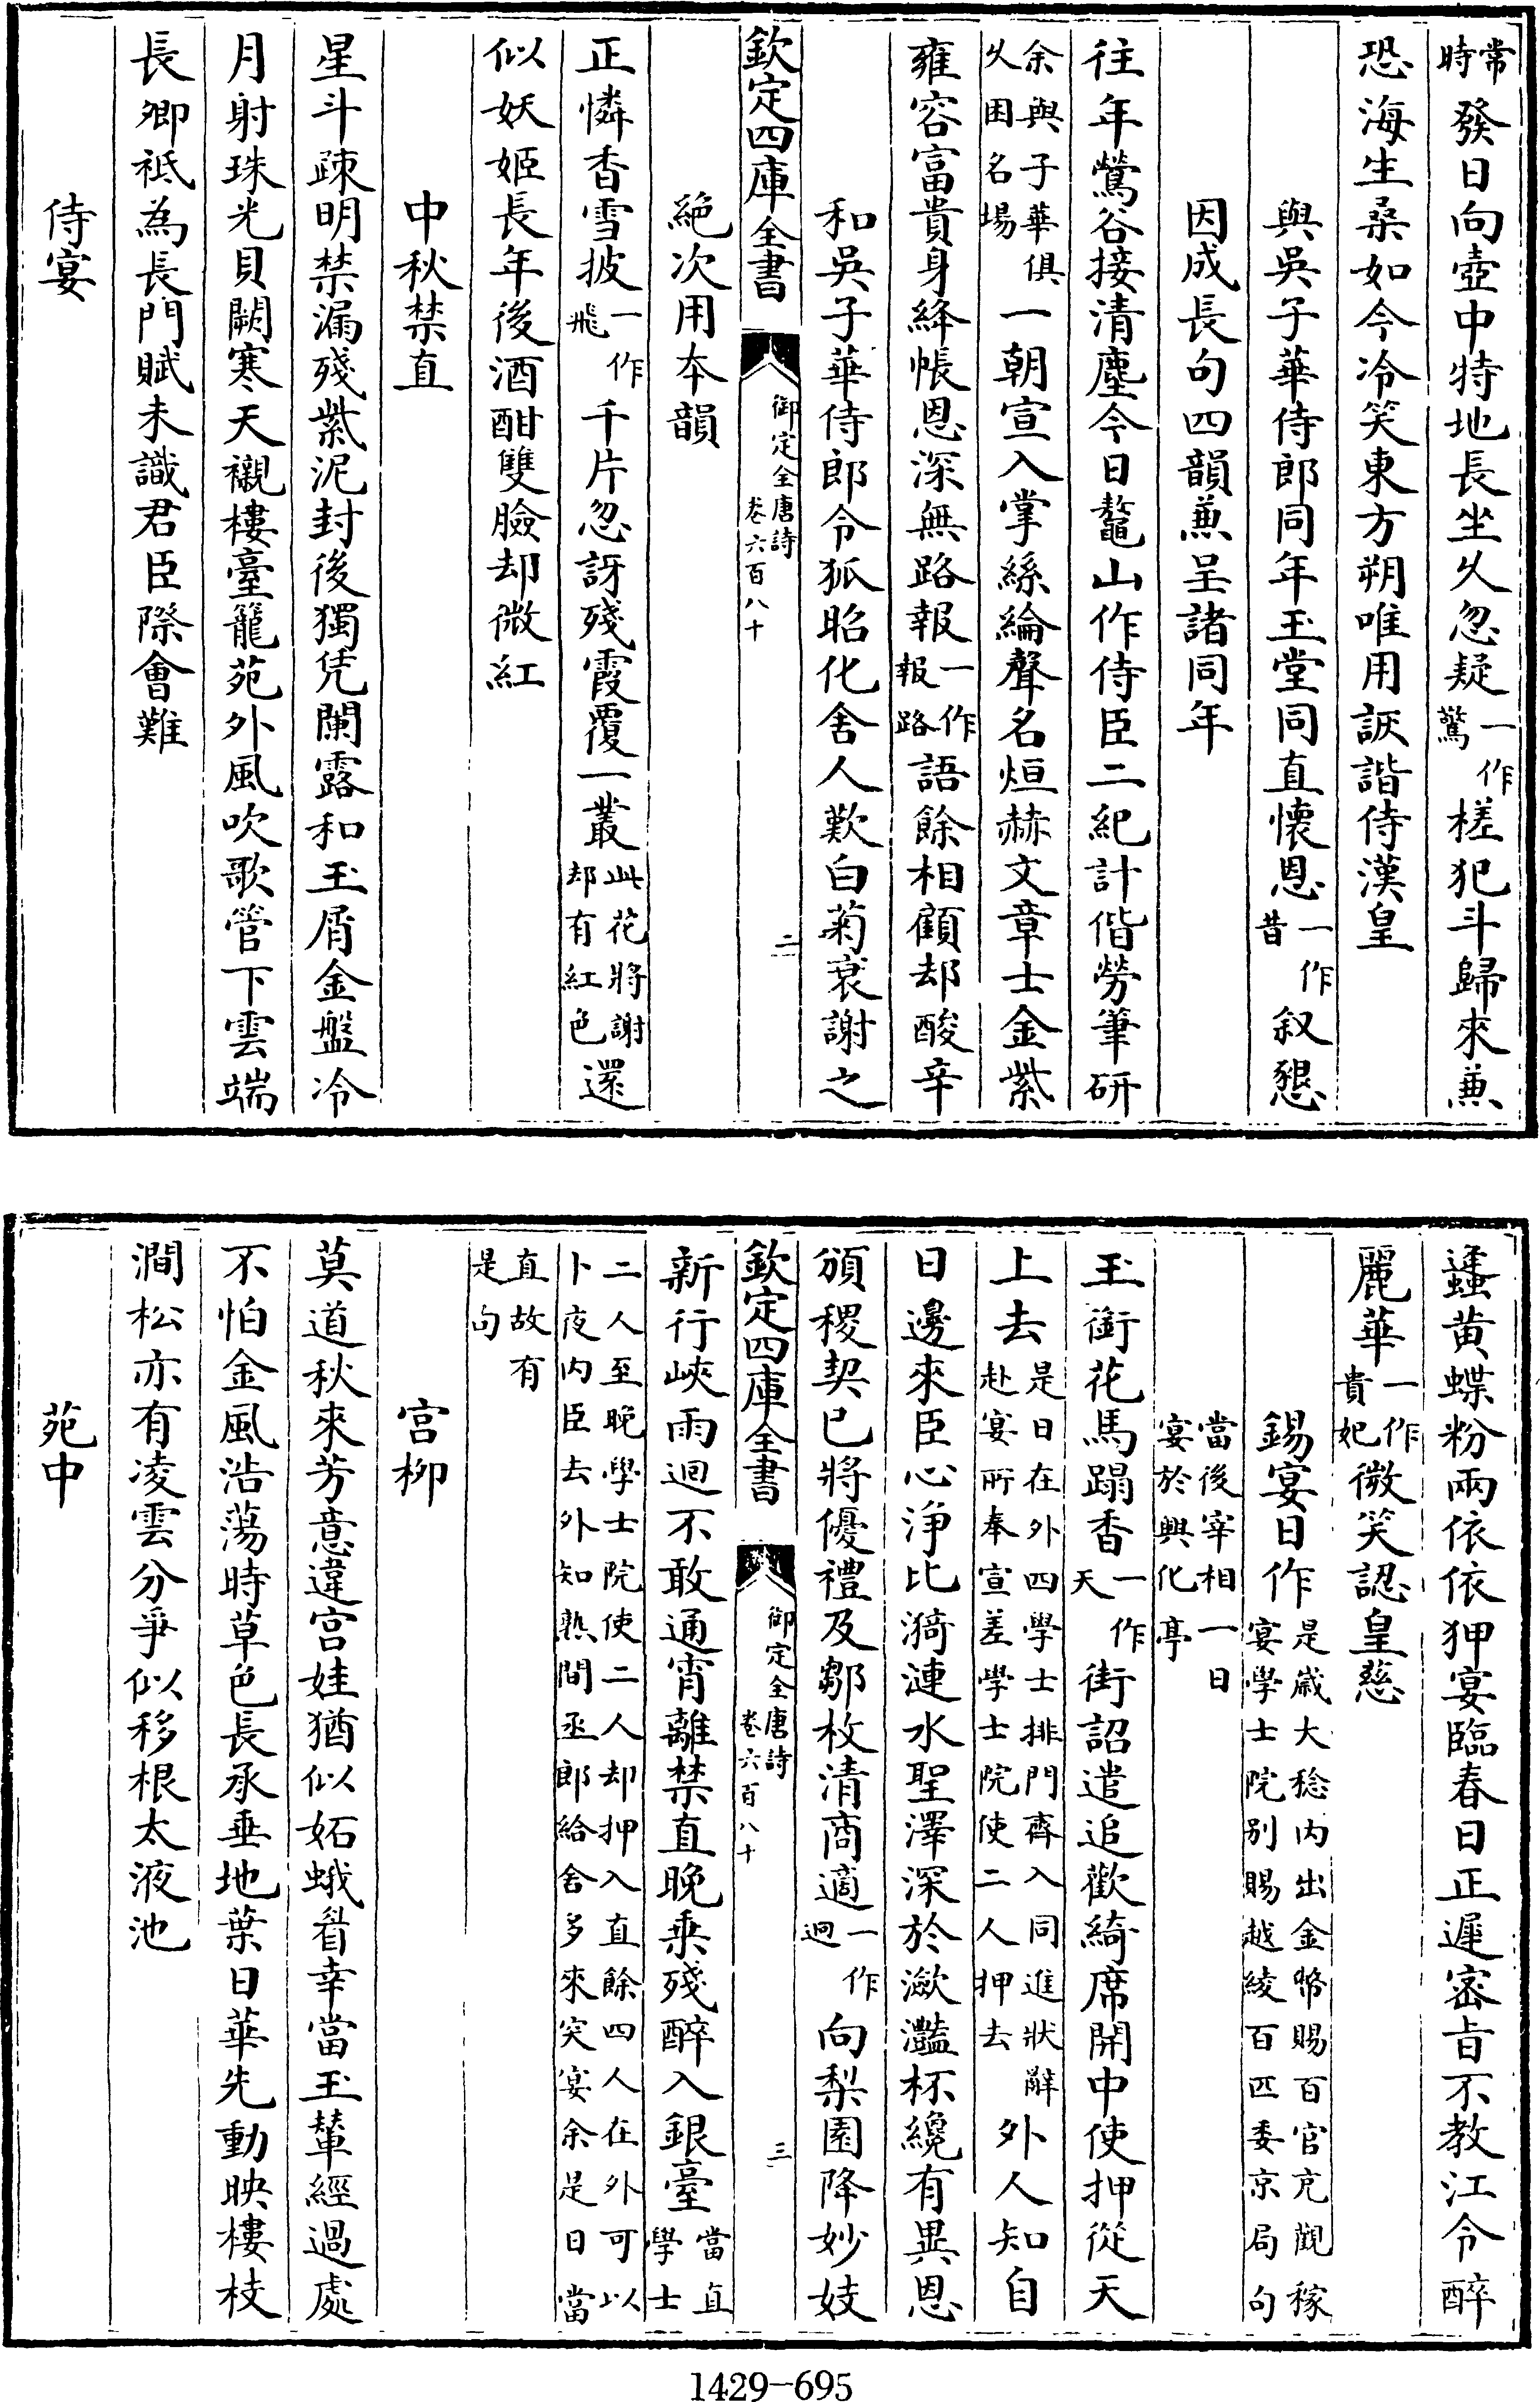 常時發日向壺中特地長坐久忽疑一作驚槎犯斗歸來兼
恐海生桑如今冷笑東方朔唯用詼諧侍漢皇
與吳子華侍郎同年玉堂同直懷恩一作昔叙懇
因成長句四韻兼呈諸同年
往年鶯谷接清塵今日鼇山作侍臣二紀計偕勞筆研
余與子華俱久困名場一朝宣入掌絲綸聲名烜赫文章士金紫
雍容富貴身絳帳恩深無路報一作報路語餘相顧却酸辛
和吳子華侍郎令狐昭化舍人歎白菊衰謝之
欽定四庫全書 御定全唐詩卷六百八十 二
絕次用本韻
正憐香雪披一作飛千片忽訝殘霞覆一叢此花將謝却有紅色還
似妖姬長年後酒酣雙臉却微紅
中秋禁直
星斗疎明禁漏殘紫泥封後獨凭闌露和玉屑金盤冷
月射珠光貝闕寒天襯樓臺籠苑外風吹歌管下雲端
長卿祗為長門賦未識君臣際會難
侍宴
蠭黄蝶粉兩依依狎宴臨春日正遲密旨不教江令醉
麗華一作貴妃微笑認皇慈
錫宴日作是歲大稔内出金幣賜百官充觀稼宴學士院别賜越綾百匹委京局勾
當後宰相一日宴於興化亭
玉銜花馬蹋香一作天街詔遣追歡綺席開中使押從天
上去是日在外四學士排門齊入同進狀辭赴宴所奉宣差學士院使二人押去外人知自
日邊來臣心淨比漪漣水聖澤深於瀲灩杯纔有異恩
頒稷契已將優禮及鄒枚清商適一作迴向梨園降妙妓
欽定四庫全書 御定全唐詩卷六百八十 三
新行峽雨迴不敢通宵離禁直晚乗殘醉入銀臺當直學士
二人至晚學士院使二人却押入直餘四人在外可以卜夜内臣去外知熟間丞郎給舍多來突宴余是日當
直故有是句
宫栁
莫道秋來芳意違宫娃猶似妬蛾眉幸當玉輦經過處
不怕金風浩蕩時草色長承垂地葉日華先動映樓枝
澗松亦有凌雲分爭似移根太液池
苑中
1429-695